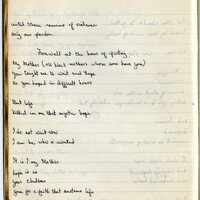 until them remains of violence
only one pardon.
Farewell at the hour of parting
My Mother (all black mothers whose sons have gone)
you taught me to wait and hope
as you hoped in difficult hours
But life
killed in me that mystic hope
I do not wait now
I am he who is awaited
It is I my Mother
hope is us
your children
gone for a faith that sustains life